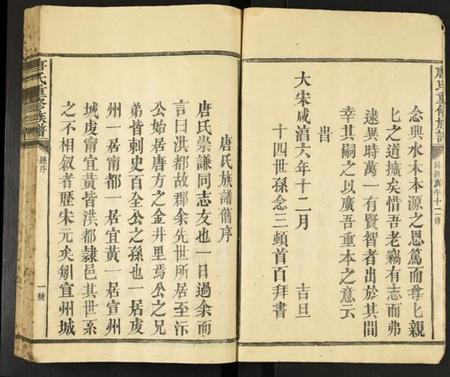 唐氏重修族譜
念興水木本源之恩篤而尊上親
上之道擴矣惜吾老竊有志而弗
逮異時萬一有賢智者出於其間
幸其嗣之以廣吾重本之意云
旹
大宋咸淳六年十二月 吉旦
十四世孫念三頓首百拜書
唐氏族譜舊序
唐氏崇謙同志友也一日過余而
言曰洪都故郡余先世所居至
公始居唐方之金井里焉公之兄
弟皆刺史百全公之孫也一居虔
州一居南都一居宜黃一居宣州
城虔甯宜黃皆洪都隸邑其世系
之不相叙者歷宋元矣刻宣州城
唐氏重修族譜
譜序
一號